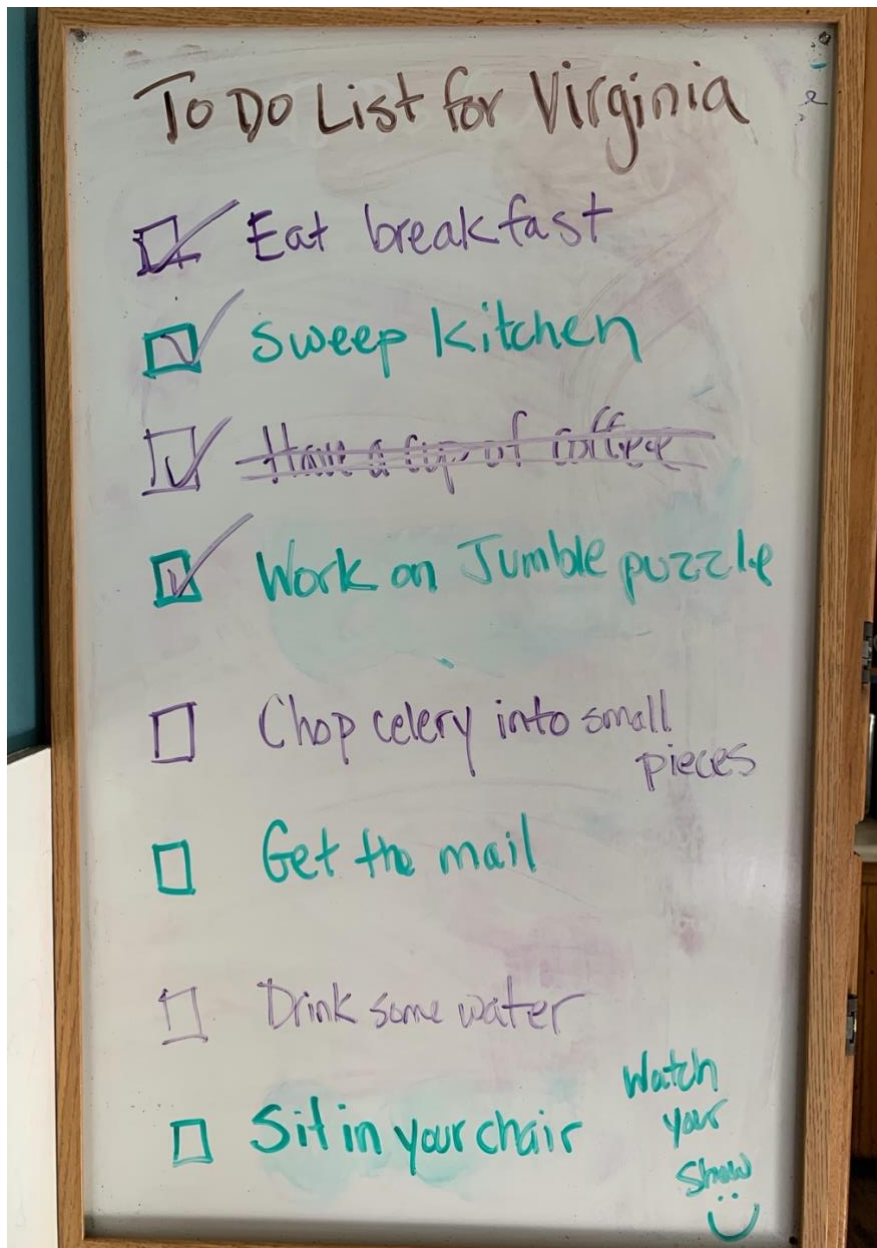 To Do List for Virginia
Eat breakfast
Sweep kitchen
Have a cup of coffee
Work on Jumble puzzle
Chop celery into small
pieces
Get the mail
Drink some water
Sit in your chair
Watch
your
Show